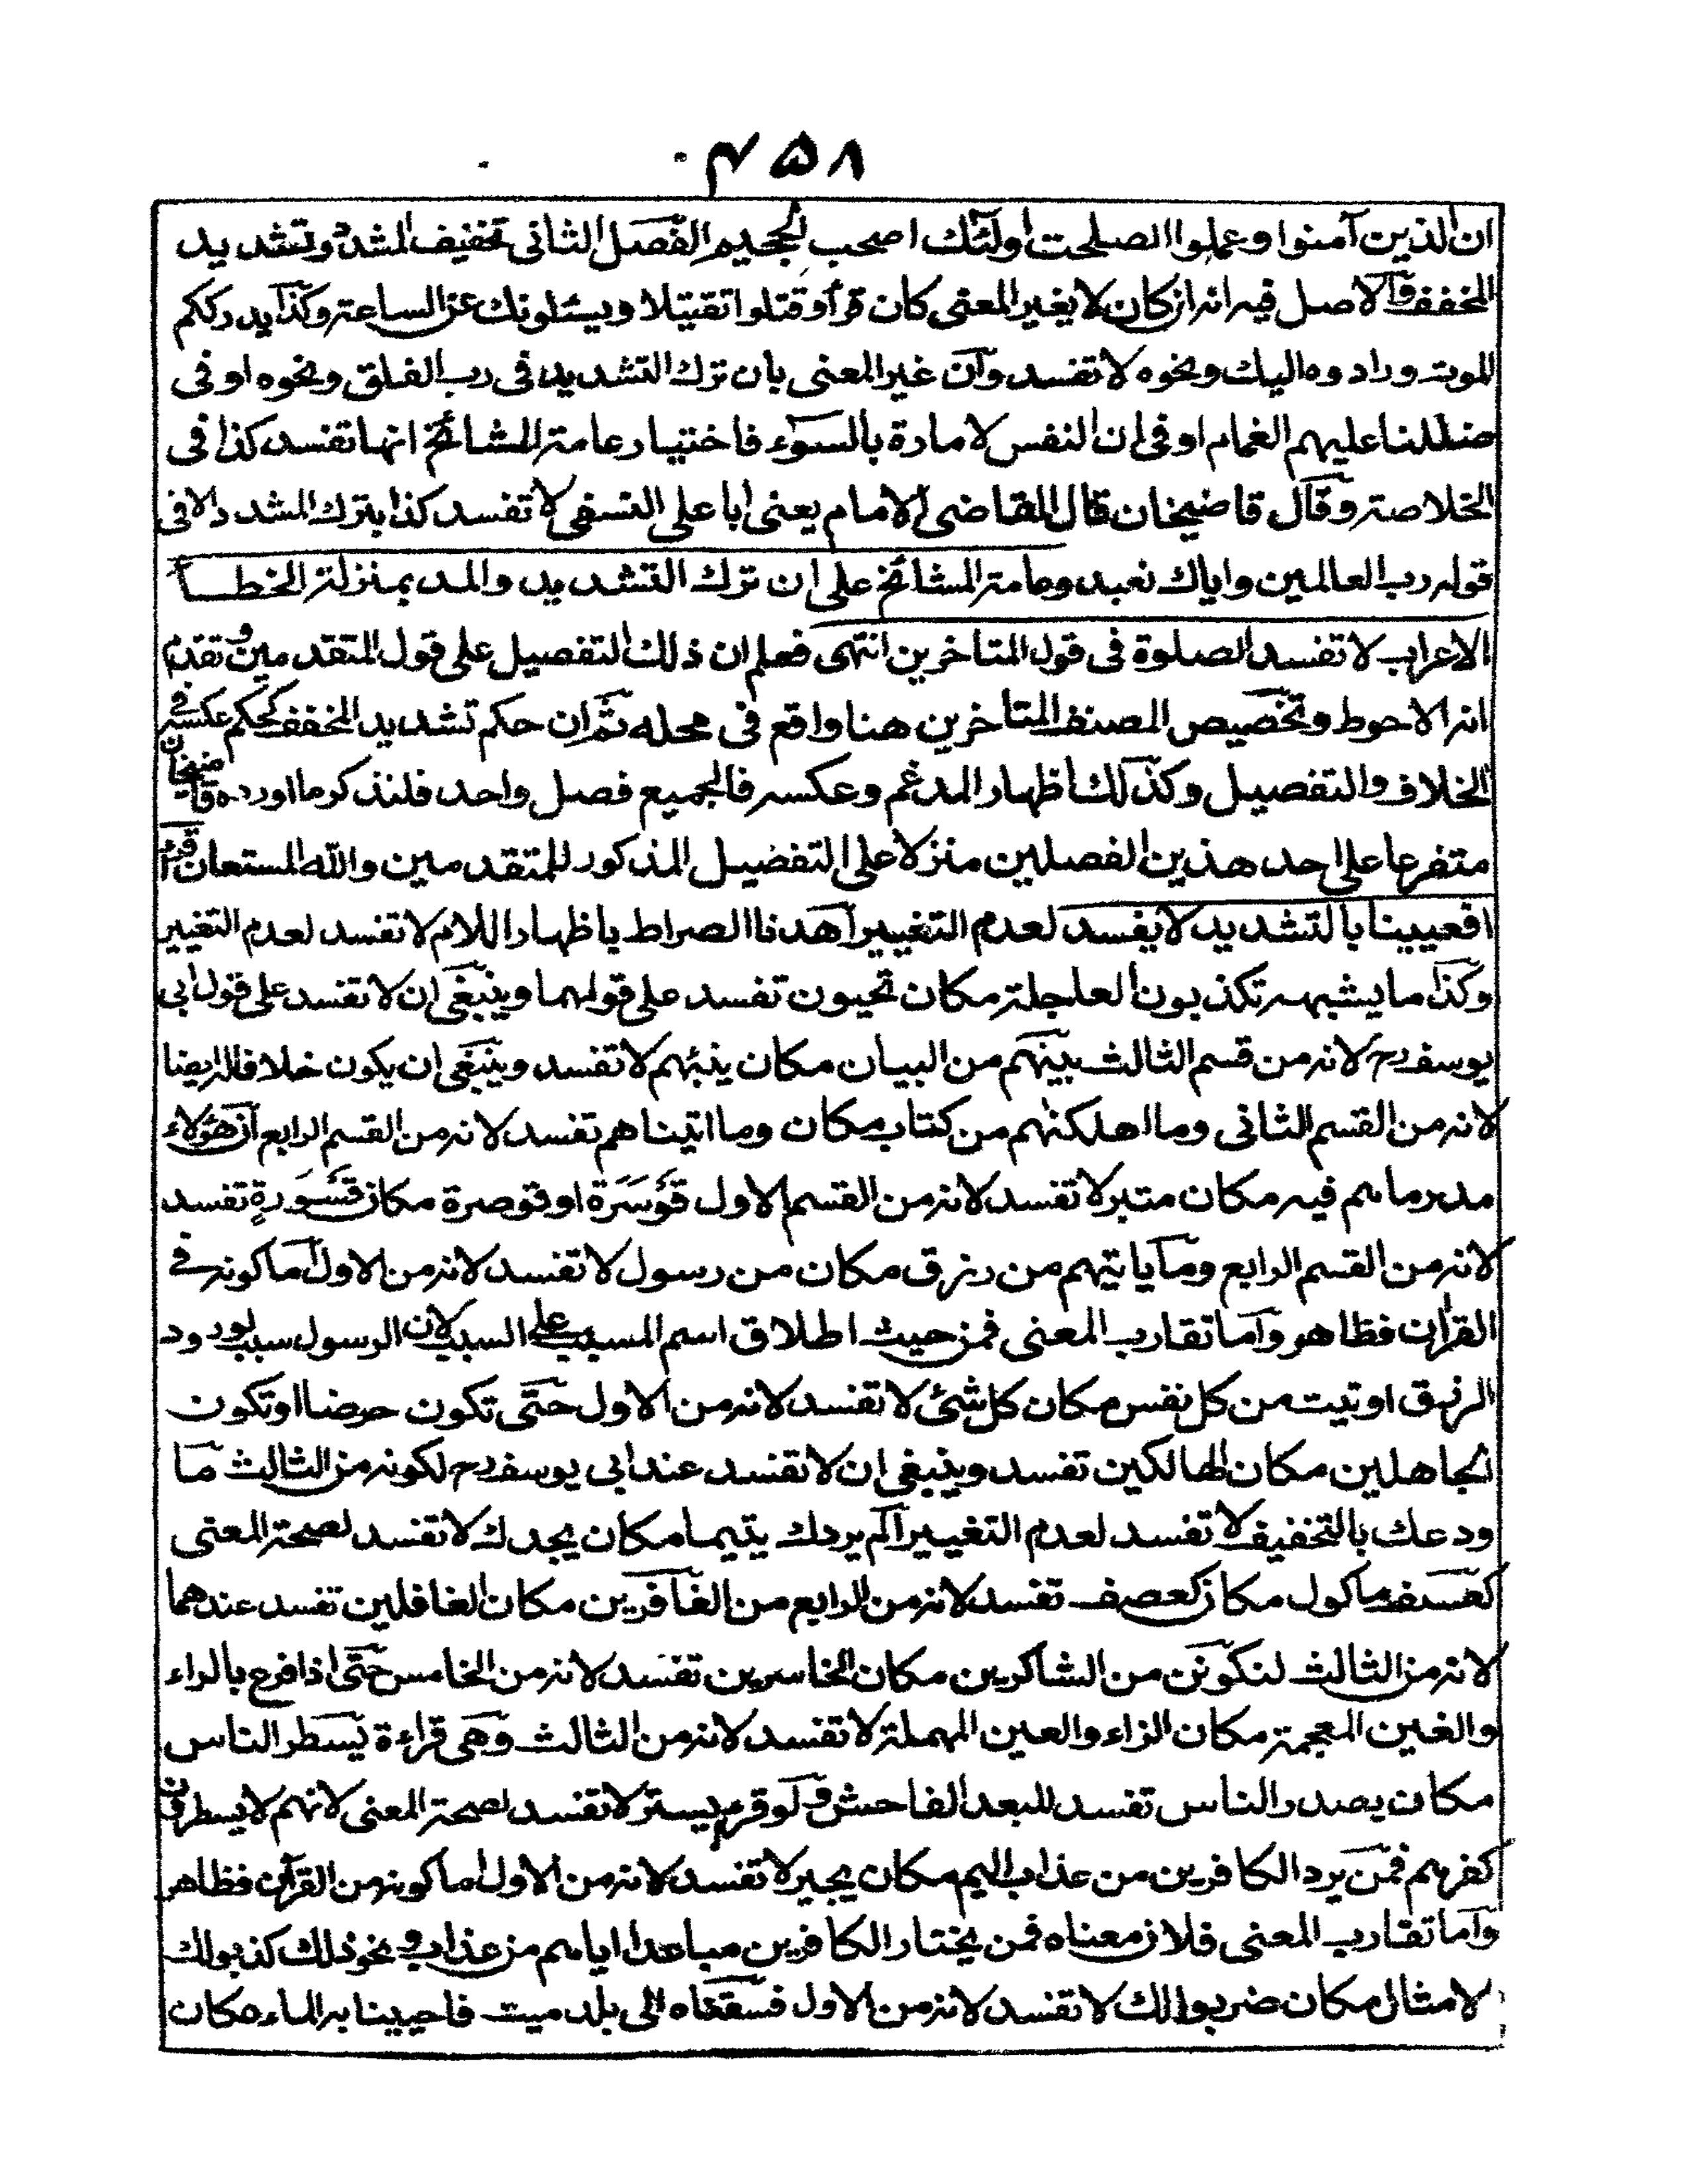 ۴۵۸
ان الذين آمنوا وعملوا الصلحت اولئك اصحب الجحيم الفصل الثانى تخفيف المشدد وتشديد
المخفف والاصل فيه انه ان كان لا يغير المعنى كان قرأ وقتلوا تقتيلا ويسئلونك عن الساعة وكذا يدرككم
الموت وراد وه اليك ونحوه لا تفسد وان غير المعنى بان ترك التشديد فى رب الفلق ونحوه او فى
ضللنا عليهم الغمام او فى ان النفس لامارة بالسوء فاختيار عامة المشائخ انها تفسد كذا فى
الخلاصة وقال قاضيخان قال القاضى الامام يعنى ابا على النسفى لا تفسد كذا بترك المشدد الا فى
قوله رب العالمين واياك نعبد وعامة المشائخ على ان ترك التشديد والمد بمنزلة الخطأ
الاعراب لا تفسد الصلوة فى قول المتاخرين انتهى فعلم ان ذلك التفصيل على قول المتقدمين وتقدم
انه الاحوط وتخصيص المصنف المتاخرين هنا واقع فى محله ثم ان حكم تشديد المخفف كحكم عكسه فى
الخلاف والتفصيل وكذلك اظهار المدغم وعكسه فالجميع فصل واحد فلنذكر ما اورده قاضيخان
متفرعا على احد هذين الفصلين منزلا على التفضيل المذكور للمتقدمين والله المستعان قرأ
افعيينا بالتشديد لا يفسد لعدم التغيير اهدنا الصراط باظهار اللام لا تفسد لعدم التغيير
وكذا ما يشبهه تكذبون العاجلة مكان تحبون تفسد على قولهما وينبغى ان لا تفسد على قول ابى
يوسف رح لانه من قسم الثالث بينهم من البيان مكان ينبئهم لا تفسد وينبغى ان يكون خلافا له ايضا
لانه من القسم الثانى وما اهلكنهم من كتاب مكان وما اتيناهم تفسد لانه من القسم الرابع ان هؤلاء
مدبر ما هم فيه مكان متبر لا تفسد لانه من القسم الاول قؤسرة او قوصرة مكان قسورة تفسد
لانه من القسم الرابع وما ياتيهم من رزق مكان من رسول لا تفسد لانه من الاول اما كونه فى
القرأن فظاهر واما تقارب المعنى فمن حيث اطلاق اسم المسبب على السبب لان الرسول سبب لورود
الرزق اوتيت من كل نفس مكان كل شئ لا تفسد لانه من الاول حتى تكون حرضا او تكون
الجاهلين مكان الهالكين تفسد وينبغى ان لا تفسد عند ابى يوسف رح لكونه من الثالث ما
ودعك بالتخفيف لا تفسد لعدم التغيير الم يردك يتيما مكان يجدك لا تفسد لصحة المعنى
كعسف ماكول مكان كعصف تفسد لانه من الرابع من الغافرين مكان الغافلين تفسد عندهما
لانه من الثالث لنكونن من الشاكرين مكان الخاسرين تفسد لانه من الخامس حتى اذا فرع بالراء
والغين المعجمة مكان الزاء والعين المهملة لا تفسد لانه من الثالث وهى قراءة يسطر الناس
مكان يصدر الناس تفسد للبعد الفاحش ولو قرء يستر لا تفسد لصحة المعنى لانهم لا يسطرون
كفرهم فمن يرد الكافرين من عذاب اليم مكان يجير لا تفسد لانه من الاول اما كونه من القرآن فظاهر
واما تقارب المعنى فلان معناه فمن يختار الكافرين مباعدا اياهم من عذاب ونحو ذلك كذبوا لك
لامثال مكان ضربوا لك لا تفسد لانه من الاول فسقناه الى بلد ميت فاحيينا به الماء مكان